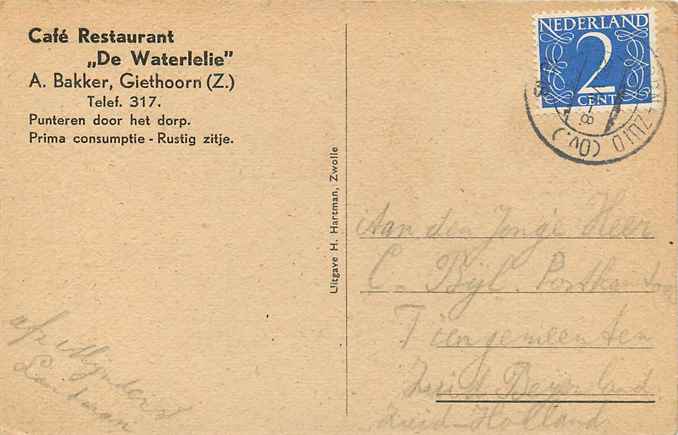 Café Restaurant
„De Waterlelie”
A. Bakker, Giethoorn (Z.)
Telef. 317.
Punteren door het dorp.
Prima consumptie - Rustig zitje.
Uitgave H. Hartman, Zwolle
NEDERLAND
2
CENT
ZUID (OV.)
Aan den Jonge Heer
C. Bijl. Postkantoor
Tiengemeenten
Zuid Beyerland
Zuid-Holland
afz